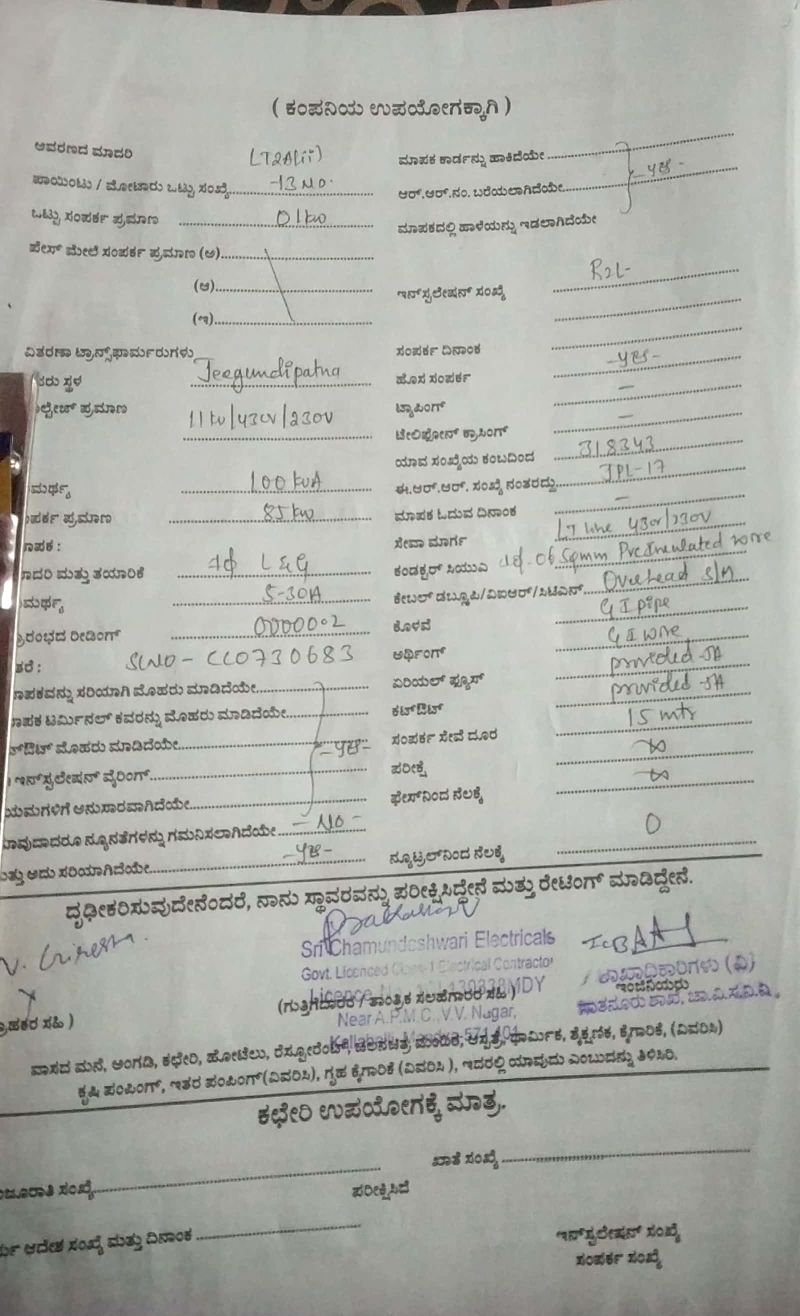 ( ಕಂಪನಿಯ ಉಪಯೋಗಕ್ಕಾಗಿ )
ಆವರಣದ ಮಾದರಿ LT2A(ii)
ಮಾಪಕ ಕಾರ್ಡನ್ನು ಹಾಕಿದೆಯೇ
ಪಾಯಿಂಟು / ಮೋಟಾರು ಒಟ್ಟು ಸಂಖ್ಯೆ -13 No.
ಆರ್.ಆರ್.ನಂ. ಬರೆಯಲಾಗಿದೆಯೇ -yes-
ಒಟ್ಟು ಸಂಪರ್ಕ ಪ್ರಮಾಣ 01kw
ಮಾಪಕದಲ್ಲಿ ಹಾಳೆಯನ್ನು ಇಡಲಾಗಿದೆಯೇ
ಫೇಸ್ ಮೇಲೆ ಸಂಪರ್ಕ ಪ್ರಮಾಣ (ಅ)
(ಆ)
(ಇ)
ಇನ್‌ಸ್ಟಲೇಷನ್ ಸಂಖ್ಯೆ R2L-
ವಿತರಣಾ ಟ್ರಾನ್ಸ್‌ಫಾರ್ಮರುಗಳು
ಸಂಪರ್ಕ ದಿನಾಂಕ
ಸರು ಸ್ಥಳ Jeegundipatna
ಹೊಸ ಸಂಪರ್ಕ -yes-
ಲ್ಟೇಜ್ ಪ್ರಮಾಣ 11kv/430v/230v
ಟ್ಯಾಪಿಂಗ್ –
ಟೆಲಿಫೋನ್ ಕ್ರಾಸಿಂಗ್ –
ಯಾವ ಸಂಖ್ಯೆಯ ಕಂಬದಿಂದ 318343
ಮರ್ಥ್ಯ 100 kvA
ಈ.ಆರ್.ಆರ್. ಸಂಖ್ಯೆ ನಂತರದ್ದು JPL-17
ಪರ್ಕ ಪ್ರಮಾಣ 85 kw
ಮಾಪಕ ಓದುವ ದಿನಾಂಕ –
ಾಪಕ :
ಸೇವಾ ಮಾರ್ಗ LT line 430v/230v
ಾದರಿ ಮತ್ತು ತಯಾರಿಕೆ 1ф L&G
ಕಂಡಕ್ಟರ್ ಸಿಯುವಿ 06 Sqmm Pvc Insulated wire
ಮರ್ಥ್ಯ 5-30A
ಕೇಬಲ್ ಡಬ್ಲೂಪಿ/ವಿಐಆರ್/ಸಿಟಿಎಸ್ Overhead S/M
್ರಾರಂಭದ ರೀಡಿಂಗ್ 00000.2
ಕೊಳವೆ G I pipe
ತರೆ : SLNO - CC0730683
ಅರ್ಥಿಂಗ್ G I wire
ಾಪಕವನ್ನು ಸರಿಯಾಗಿ ಮೊಹರು ಮಾಡಿದೆಯೇ
ಏರಿಯಲ್ ಫ್ಯೂಸ್ provided-5A
ಾಪಕ ಟರ್ಮಿನಲ್ ಕವರನ್ನು ಮೊಹರು ಮಾಡಿದೆಯೇ
ಕಟ್‌ಔಟ್ provided-5A
ಟ್‌ಔಟ್ ಮೊಹರು ಮಾಡಿದೆಯೇ -yes-
ಸಂಪರ್ಕ ಸೇವೆ ದೂರ 15 mtr
ಇನ್‌ಸ್ಟಲೇಷನ್ ವೈರಿಂಗ್
ಪರೀಕ್ಷೆ ∞
ಯಮಗಳಿಗೆ ಅನುಸಾರವಾಗಿದೆಯೇ
ಫೇಸ್‌ನಿಂದ ನೆಲಕ್ಕೆ ∞
ಾವುದಾದರೂ ನ್ಯೂನತೆಗಳನ್ನು ಗಮನಿಸಲಾಗಿದೆಯೇ - NO -
ುತ್ತು ಅದು ಸರಿಯಾಗಿದೆಯೇ -yes-
ನ್ಯೂಟ್ರಲ್‌ನಿಂದ ನೆಲಕ್ಕೆ 0
ದೃಢೀಕರಿಸುವುದೇನೆಂದರೆ, ನಾನು ಸ್ಥಾವರವನ್ನು ಪರೀಕ್ಷಿಸಿದ್ದೇನೆ ಮತ್ತು ರೇಟಿಂಗ್ ಮಾಡಿದ್ದೇನೆ.
Sri Chamundeshwari Electricals
Govt. Licenced Class-1 Electrical Contractor
ಶಾಖಾಧಿಕಾರಿಗಳು (ವಿ)
ಇಂಜಿನಿಯರು
ರಾಹಕರ ಸಹಿ )
(ಗುತ್ತಿಗೆದಾರರ / ತಾಂತ್ರಿಕ ಸಲಹೆಗಾರರ ಸಹಿ )
Near A.P.M.C., V.V. Nagar,
Kallahalli, Mandya-571 401
ವಾಸದ ಮನೆ, ಅಂಗಡಿ, ಕಛೇರಿ, ಹೋಟೆಲು, ರೆಸ್ಟೋರೆಂಟ್, ಚಲನಚಿತ್ರ ಮಂದಿರ, ಆಸ್ಪತ್ರೆ, ಧಾರ್ಮಿಕ, ಶೈಕ್ಷಣಿಕ, ಕೈಗಾರಿಕೆ, (ವಿವರಿಸಿ)
ಕೃಷಿ ಪಂಪಿಂಗ್, ಇತರ ಪಂಪಿಂಗ್(ವಿವರಿಸಿ), ಗೃಹ ಕೈಗಾರಿಕೆ (ವಿವರಿಸಿ ), ಇದರಲ್ಲಿ ಯಾವುದು ಎಂಬುದನ್ನು ತಿಳಿಸಿರಿ.
ಕಛೇರಿ ಉಪಯೋಗಕ್ಕೆ ಮಾತ್ರ.
ಖಾತೆ ಸಂಖ್ಯೆ
ಂಜೂರಾತಿ ಸಂಖ್ಯೆ
ಪರೀಕ್ಷಿಸಿದೆ
ಆದೇಶ ಸಂಖ್ಯೆ ಮತ್ತು ದಿನಾಂಕ
ಇನ್‌ಸ್ಟಲೇಷನ್ ಸಂಖ್ಯೆ
ಸಂಪರ್ಕ ಸಂಖ್ಯೆ